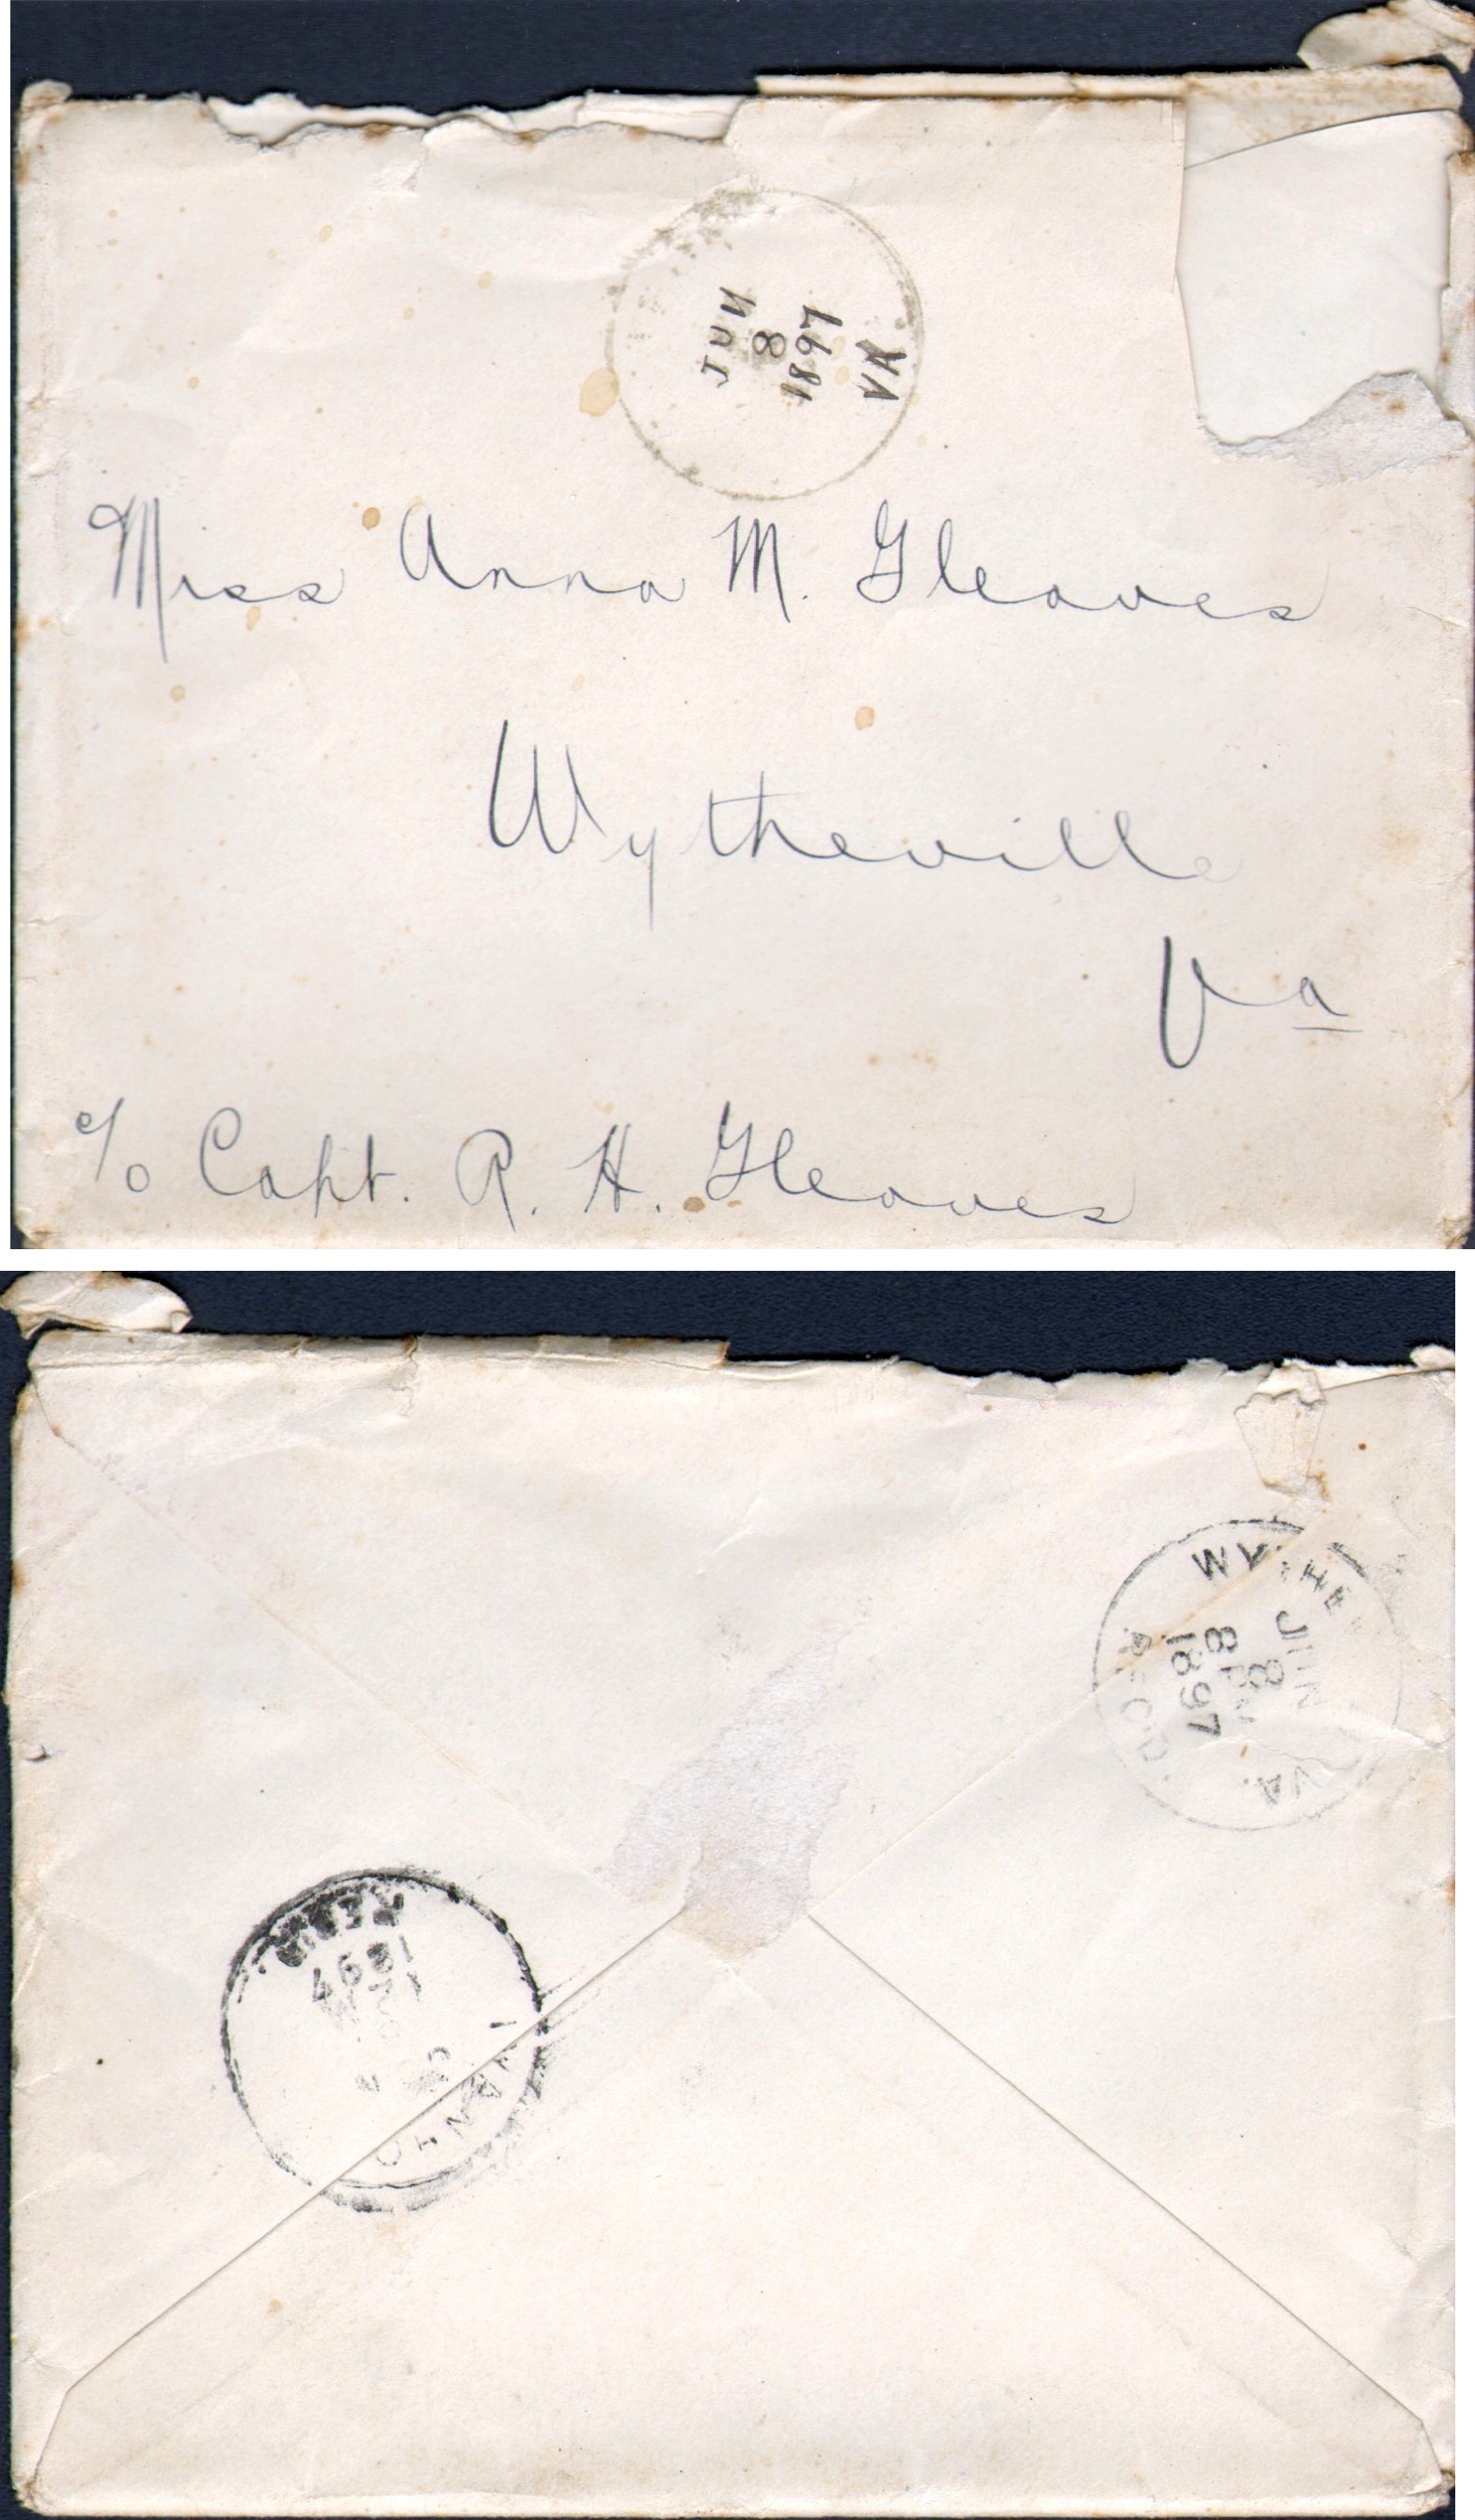 JUN
8
1897
VA
Miss Anna M. Gleaves
Wytheville
Va
c/o Capt. R. H. Gleaves
WYTHE
VA.
JUN
8
8 PM
1897
REC'D.
1897